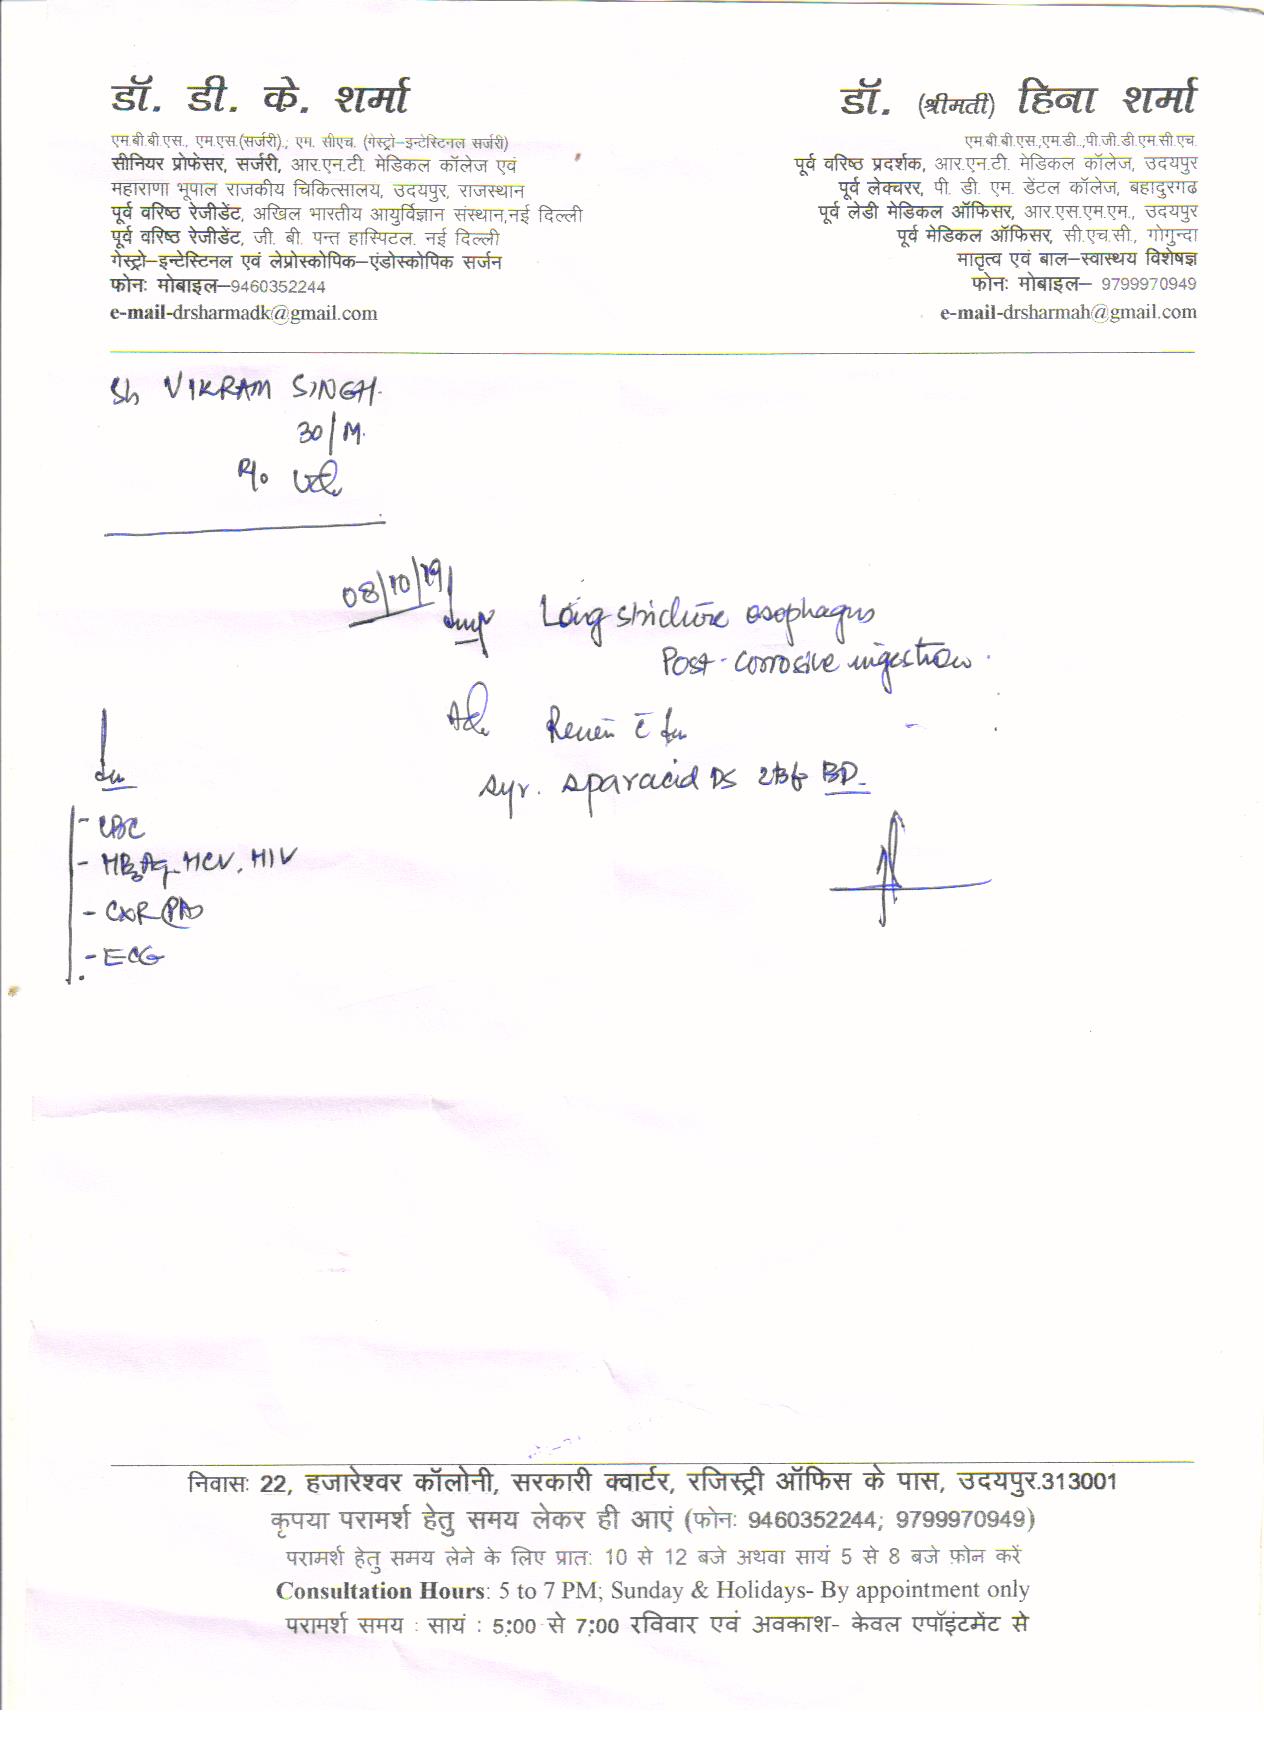 डॉ. डी. के. शर्मा
एम.बी.बी.एस., एम.एस.(सर्जरी).; एम. सीएच. (गेस्ट्रो–इन्टेस्टिनल सर्जरी)
सीनियर प्रोफेसर, सर्जरी, आर.एन.टी. मेडिकल कॉलेज एवं
महाराणा भूपाल राजकीय चिकित्सालय, उदयपुर, राजस्थान
पूर्व वरिष्ठ रेजीडेंट, अखिल भारतीय आयुर्विज्ञान संस्थान,नई दिल्ली
पूर्व वरिष्ठ रेजीडेंट, जी. बी. पन्त हास्पिटल. नई दिल्ली
गेस्ट्रो–इन्टेस्टिनल एवं लेप्रोस्कोपिक–एंडोस्कोपिक सर्जन
फोनः मोबाइल–9460352244
e-mail-drsharmadk@gmail.com
डॉ. (श्रीमती) हिना शर्मा
एम.बी.बी.एस.,एम.डी..,पी.जी.डी.एम.सी.एच.
पूर्व वरिष्ठ प्रदर्शक, आर.एन.टी. मेडिकल कॉलेज, उदयपुर
पूर्व लेक्चरर, पी. डी. एम. डेंटल कॉलेज, बहादुरगढ
पूर्व लेडी मेडिकल ऑफिसर, आर.एस.एम.एम., उदयपुर
पूर्व मेडिकल ऑफिसर, सी.एच.सी., गोगुन्दा
मातृत्व एवं बाल–स्वास्थय विशेषज्ञ
फोनः मोबाइल– 9799970949
e-mail-drsharmah@gmail.com
Sh VIKRAM SINGH.
30/M.
R/o
08/10/19
Imp Long stricture esophagus
Post-corrosive ingestion.
Adv. Review c̄ Inv
Syr. Sparacid DS 2tsf BD.
Inv
- CBC
- HBsAg, HCV, HIV
- CXR (PA)
- ECG
निवासः 22, हजारेश्वर कॉलोनी, सरकारी क्वार्टर, रजिस्ट्री ऑफिस के पास, उदयपुर.313001
कृपया परामर्श हेतु समय लेकर ही आएं (फोनः 9460352244; 9799970949)
परामर्श हेतु समय लेने के लिए प्रातः 10 से 12 बजे अथवा सायं 5 से 8 बजे फ़ोन करें
Consultation Hours: 5 to 7 PM; Sunday & Holidays- By appointment only
परामर्श समय : सायं : 5:00 से 7:00 रविवार एवं अवकाश- केवल एपॉइंटमेंट से